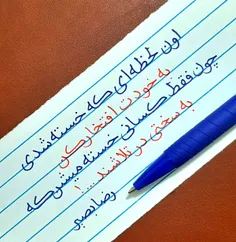 اون لحظه‌ای که خسته شدی
به خودت افتخار کن
چون فقط کسانی خسته میشن که
به سختی در تلاشند ... !
رضا نصیر